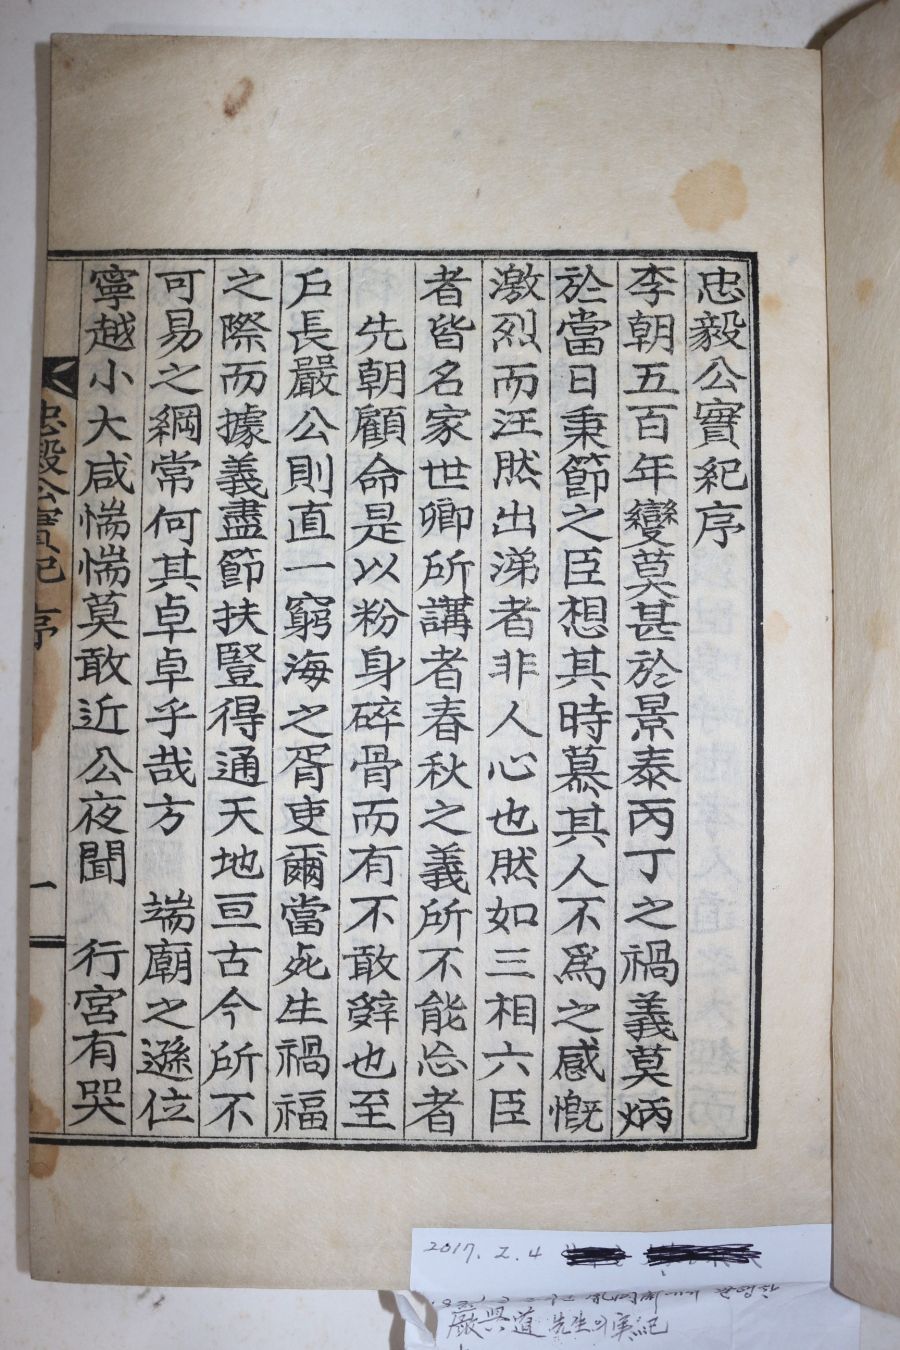 忠毅公實紀序
李朝五百年變莫甚於景泰丙丁之禍義莫炳
於當日秉節之臣想其時慕其人不爲之感慨
激烈而汪然出涕者非人心也然如三相六臣
者皆名家世卿所講者春秋之義所不能忘者
先朝顧命是以粉身碎骨而有不敢辭也至
戶長嚴公則直一窮海之胥吏爾當死生禍福
之際而據義盡節扶豎得通天地亘古今所不
可易之綱常何其卓卓乎哉方　端廟之遜位
寧越小大咸惴惴莫敢近公夜聞　行宮有哭
忠毅公實紀 序
一
2017. 2. 4
嚴興道 先生의 實紀